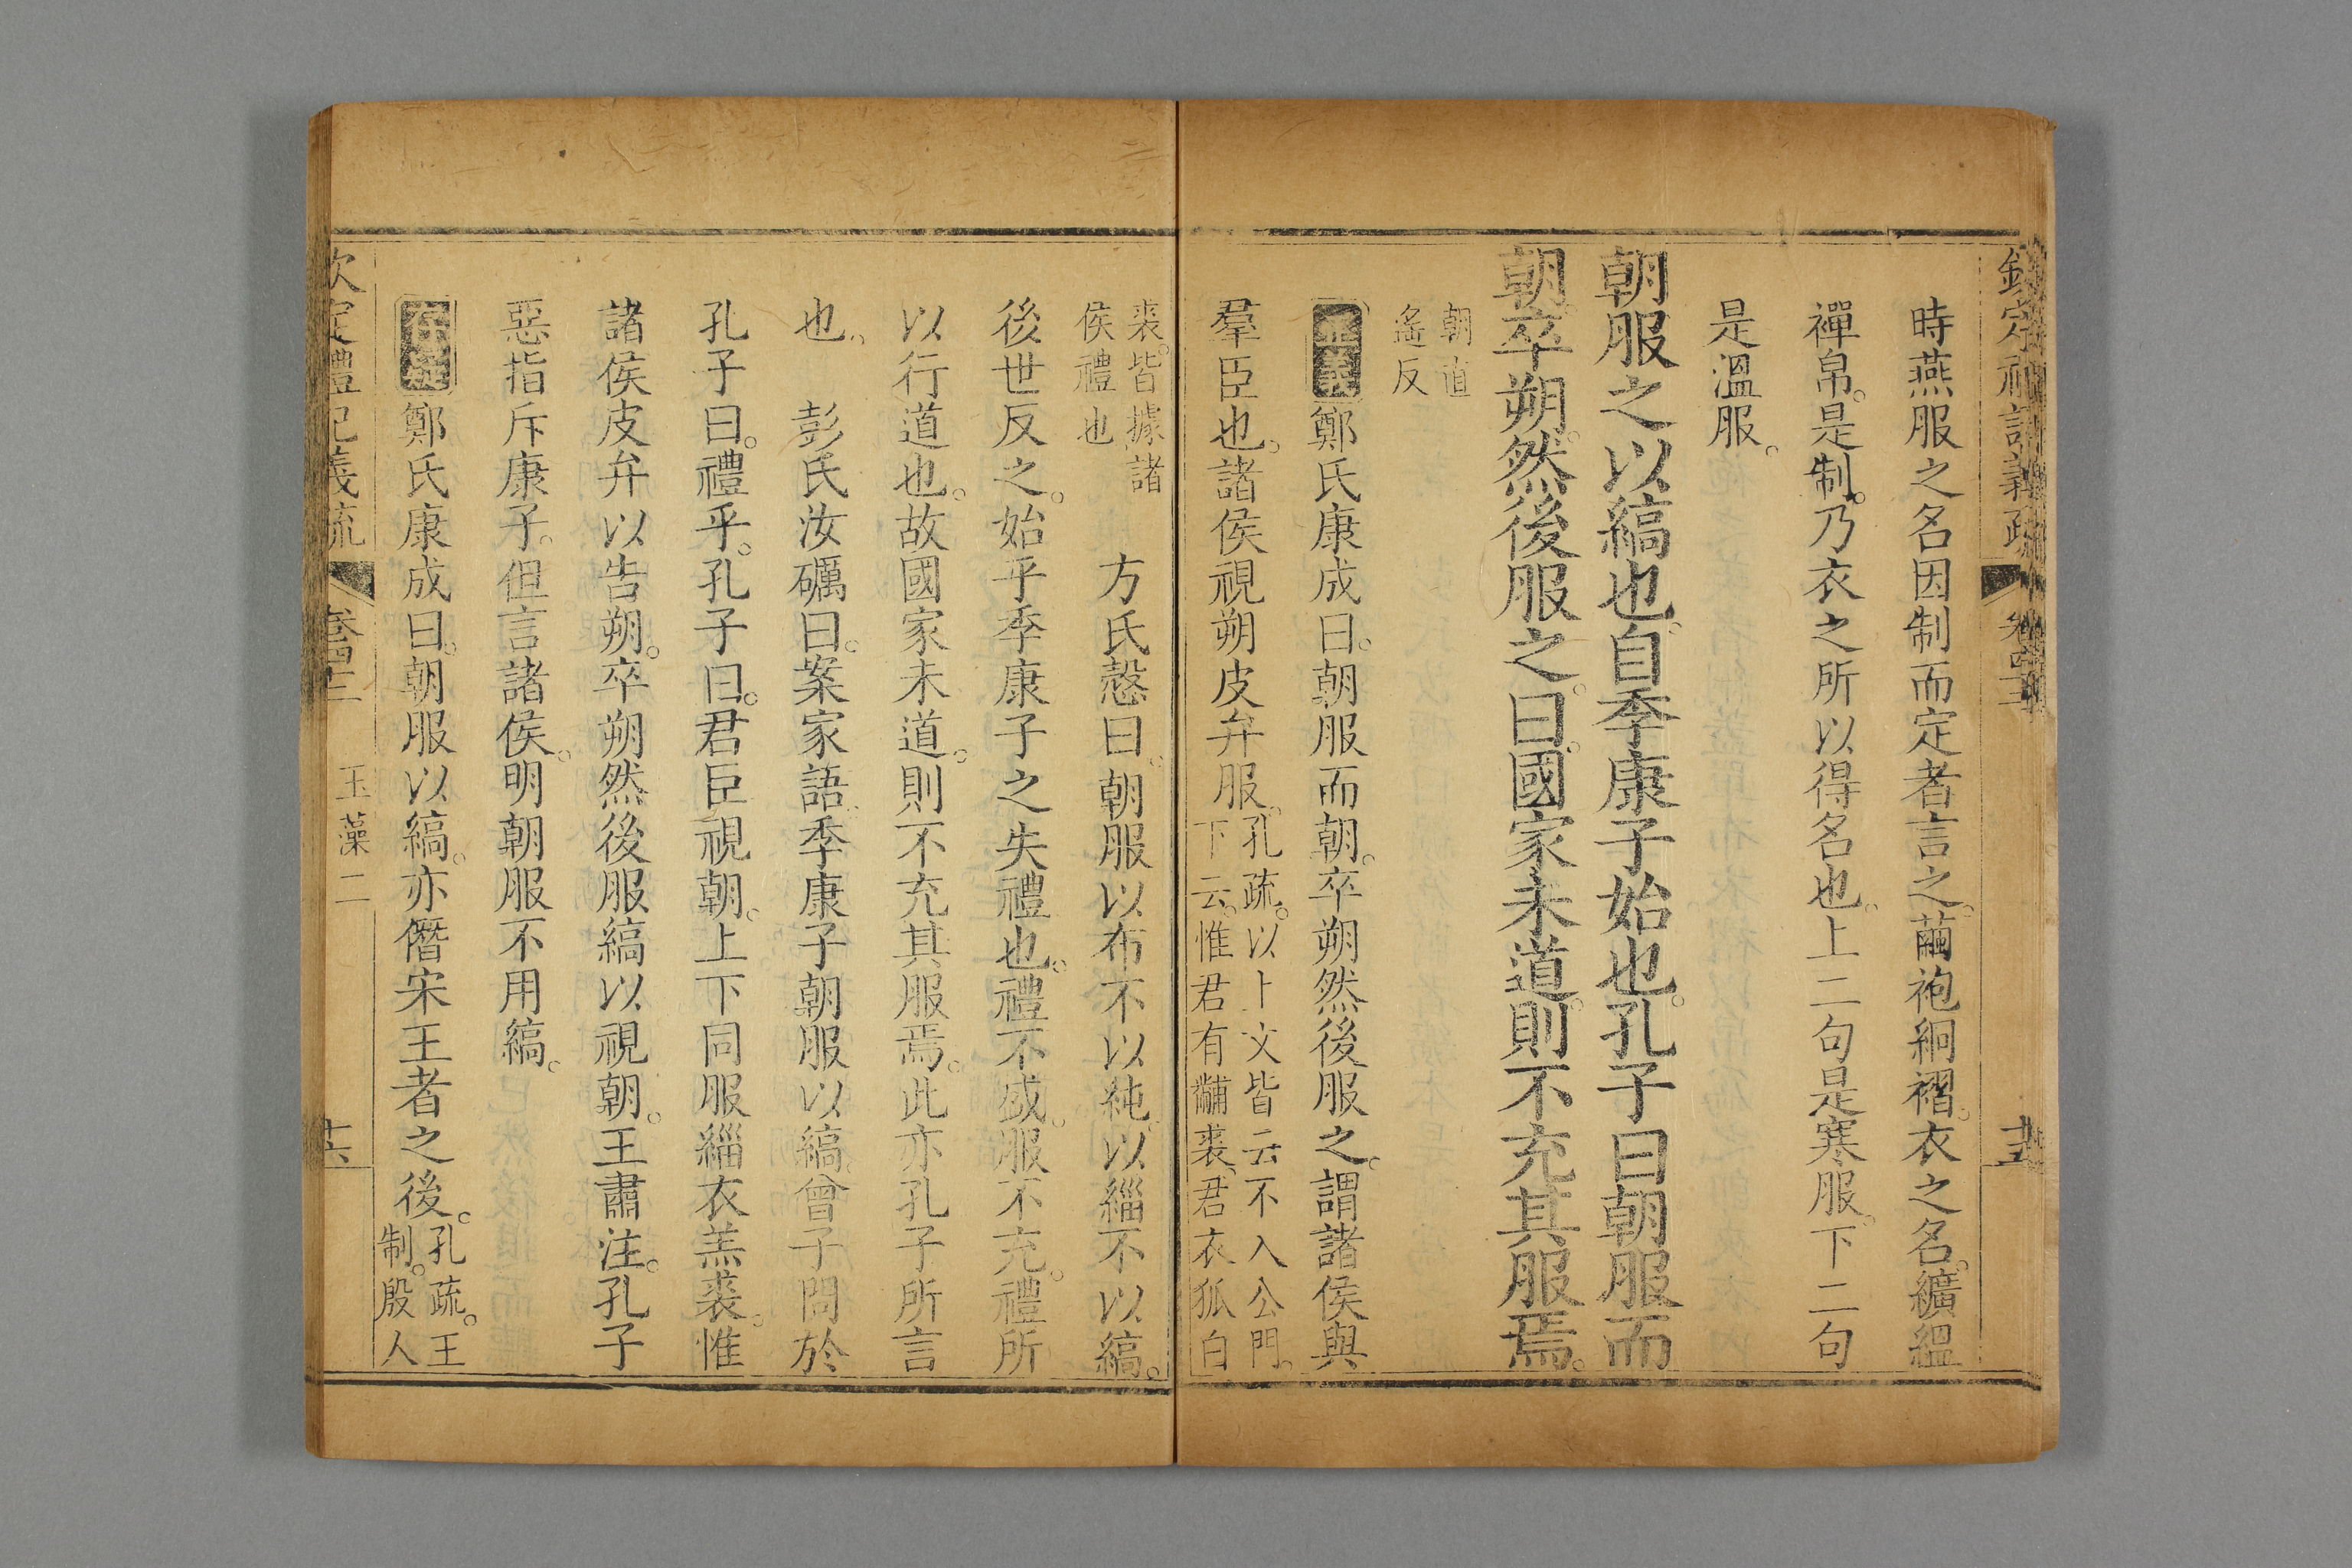 欽定禮記義疏 卷四十二 十五
時燕服之名因制而定者言之。繭袍絅褶。衣之名。纊緼
襌帛。是制。乃衣之所以得名也。上二句是寒服。下二句
是溫服。
朝服之以縞也。自季康子始也。孔子曰朝服而
朝。卒朔。然後服之。曰。國家未道。則不充其服焉。
朝直
遙反
正義鄭氏康成曰。朝服而朝。卒朔然後服之。謂諸侯與
羣臣也。諸侯視朔皮弁服。孔疏。以上文皆云不入公門。
下云。惟君有黼裘。君衣狐白
裘。皆據諸
侯禮也 方氏慤曰。朝服以布不以純。以緇不以縞。
後世反之。始乎季康子之失禮也。禮不盛。服不充。禮所
以行道也。故國家未道。則不充其服焉。此亦孔子所言
也。 彭氏汝礪曰。案家語。季康子朝服以縞。曾子問於
孔子曰。禮乎。孔子曰。君臣視朝。上下同服緇衣羔裘。惟
諸侯皮弁以告朔。卒朔然後服縞以視朝。王肅注。孔子
惡指斥康子。但言諸侯。明朝服不用縞。
存異鄭氏康成曰。朝服以縞。亦僭宋王者之後。孔疏。王
制。殷人
欽定禮記義疏 卷四十二 玉藻二 十六